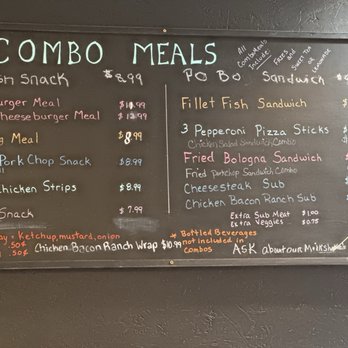 COMBO MEALS
All Combo Meals Include: FRIES and SWEET TEA or
Snack $8.99
Burger Meal $10.99
Cheeseburger Meal $12.99
Meal $8.99
Pork Chop Snack $8.99
Chicken Strips $8.99
Snack $7.99
Ketchup, mustard, onion
50¢
50¢
Chicken Bacon Ranch Wrap $10.99
PO BO Sandwich
Fillet Fish Sandwich
3 Pepperoni Pizza Sticks
Chicken Salad Sandwich Combo
Fried Bologna Sandwich
Fried Porkchop Sandwich Combo
Cheesesteak Sub
Chicken Bacon Ranch Sub
Extra Sub Meat $1.00
Extra Veggies $0.75
* Bottled Beverages not included in combos
ASK about our Milkshakes